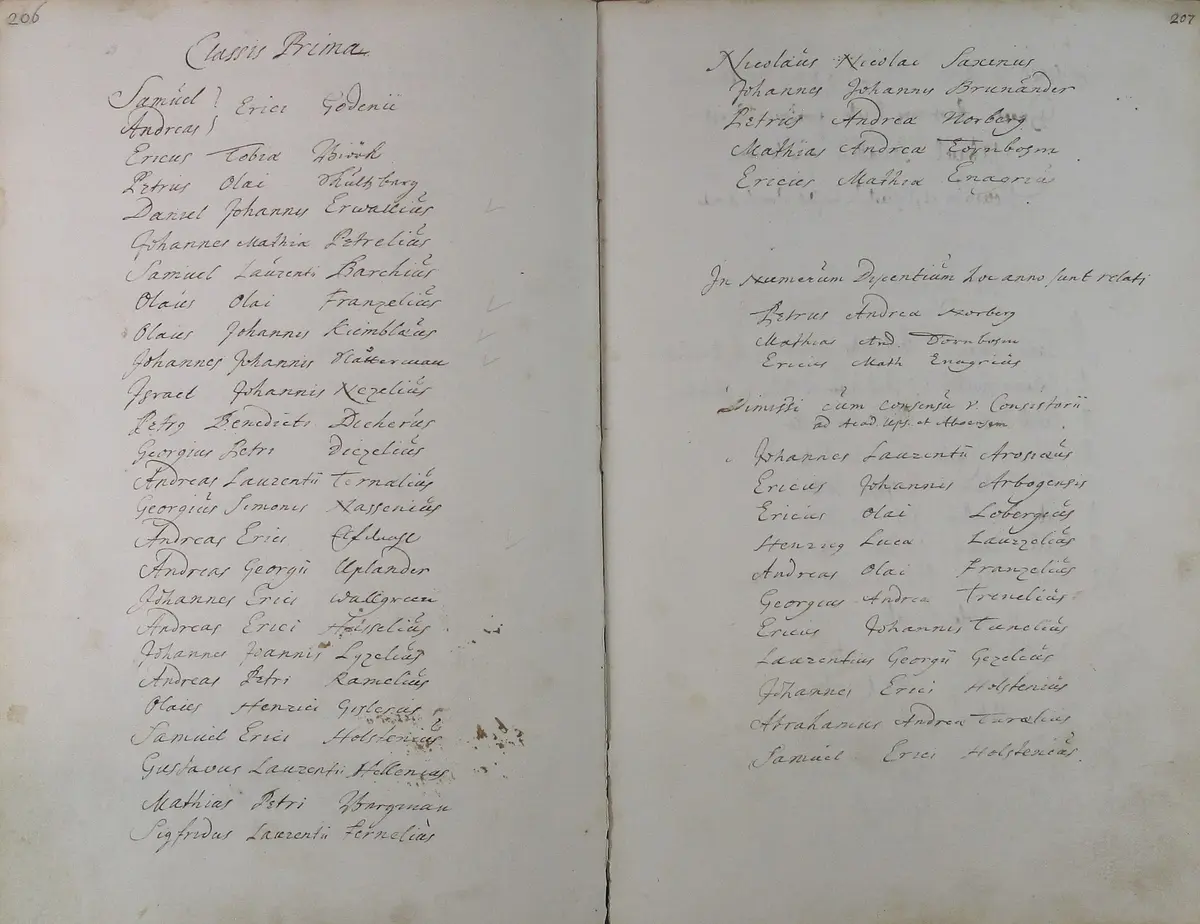 206
Classis Prima
Samuel } Erici Godenii
Andreas }
Ericus Tobiæ
Petrus Olai Skultzberg
Daniel Johannis Erwallius
Johannes Mathiæ Petrelius
Samuel Laurenti Barchius
Olaus Olai Franzelius
Olaus Johannis Kiemblæus
Johannes Johannis
Israel Johannis Nezelius
Petrg Benedicti Dicherus
Georgius Petri Diezelius
Andreas Laurentii Ternalius
Georgius Simonis Nassenius
Andreas Erici
Andreas Georgii Uplander
Johannes Erici Wallgreen
Andreas Erici Hoisselius
Johannes Joannis Lyzelius
Andreas Petri Ramelius
Olaus Henrici Gislerus
Samuel Erici Holstenius
Gustavus Laurentii Hellenius
Mathias Petri Bergman
Sigfridus Laurentii Fernelius
207
Nicolaus Nicolai Saxenius
Johannes Johannis Brunander
Petrus Andreæ Norberg
Mathias Andreæ Tornbohm
Ericus Mathiæ Enagrius
In Numerum Discentium hoc anno sunt relati
Petrus Andreæ Norberg
Mathias And. Tornbohm
Ericus Math Enagrius
Dimissi cum consensu v. Consistorii
ad Acad. Ups. et Aboensem
Johannes Laurentii Arosiæus
Ericus Johannis Arbogensis
Ericus Olai Lobergius
Henricg Lucæ Laurzelius
Andreas Olai Franzelius
Georgius Andreæ Trenelius
Ericus Johannis Tunelius
Laurentius Georgii Gezelius
Johannes Erici Holstenius
Abrahamus Andreæ Turælius
Samuel Erici Holstenius